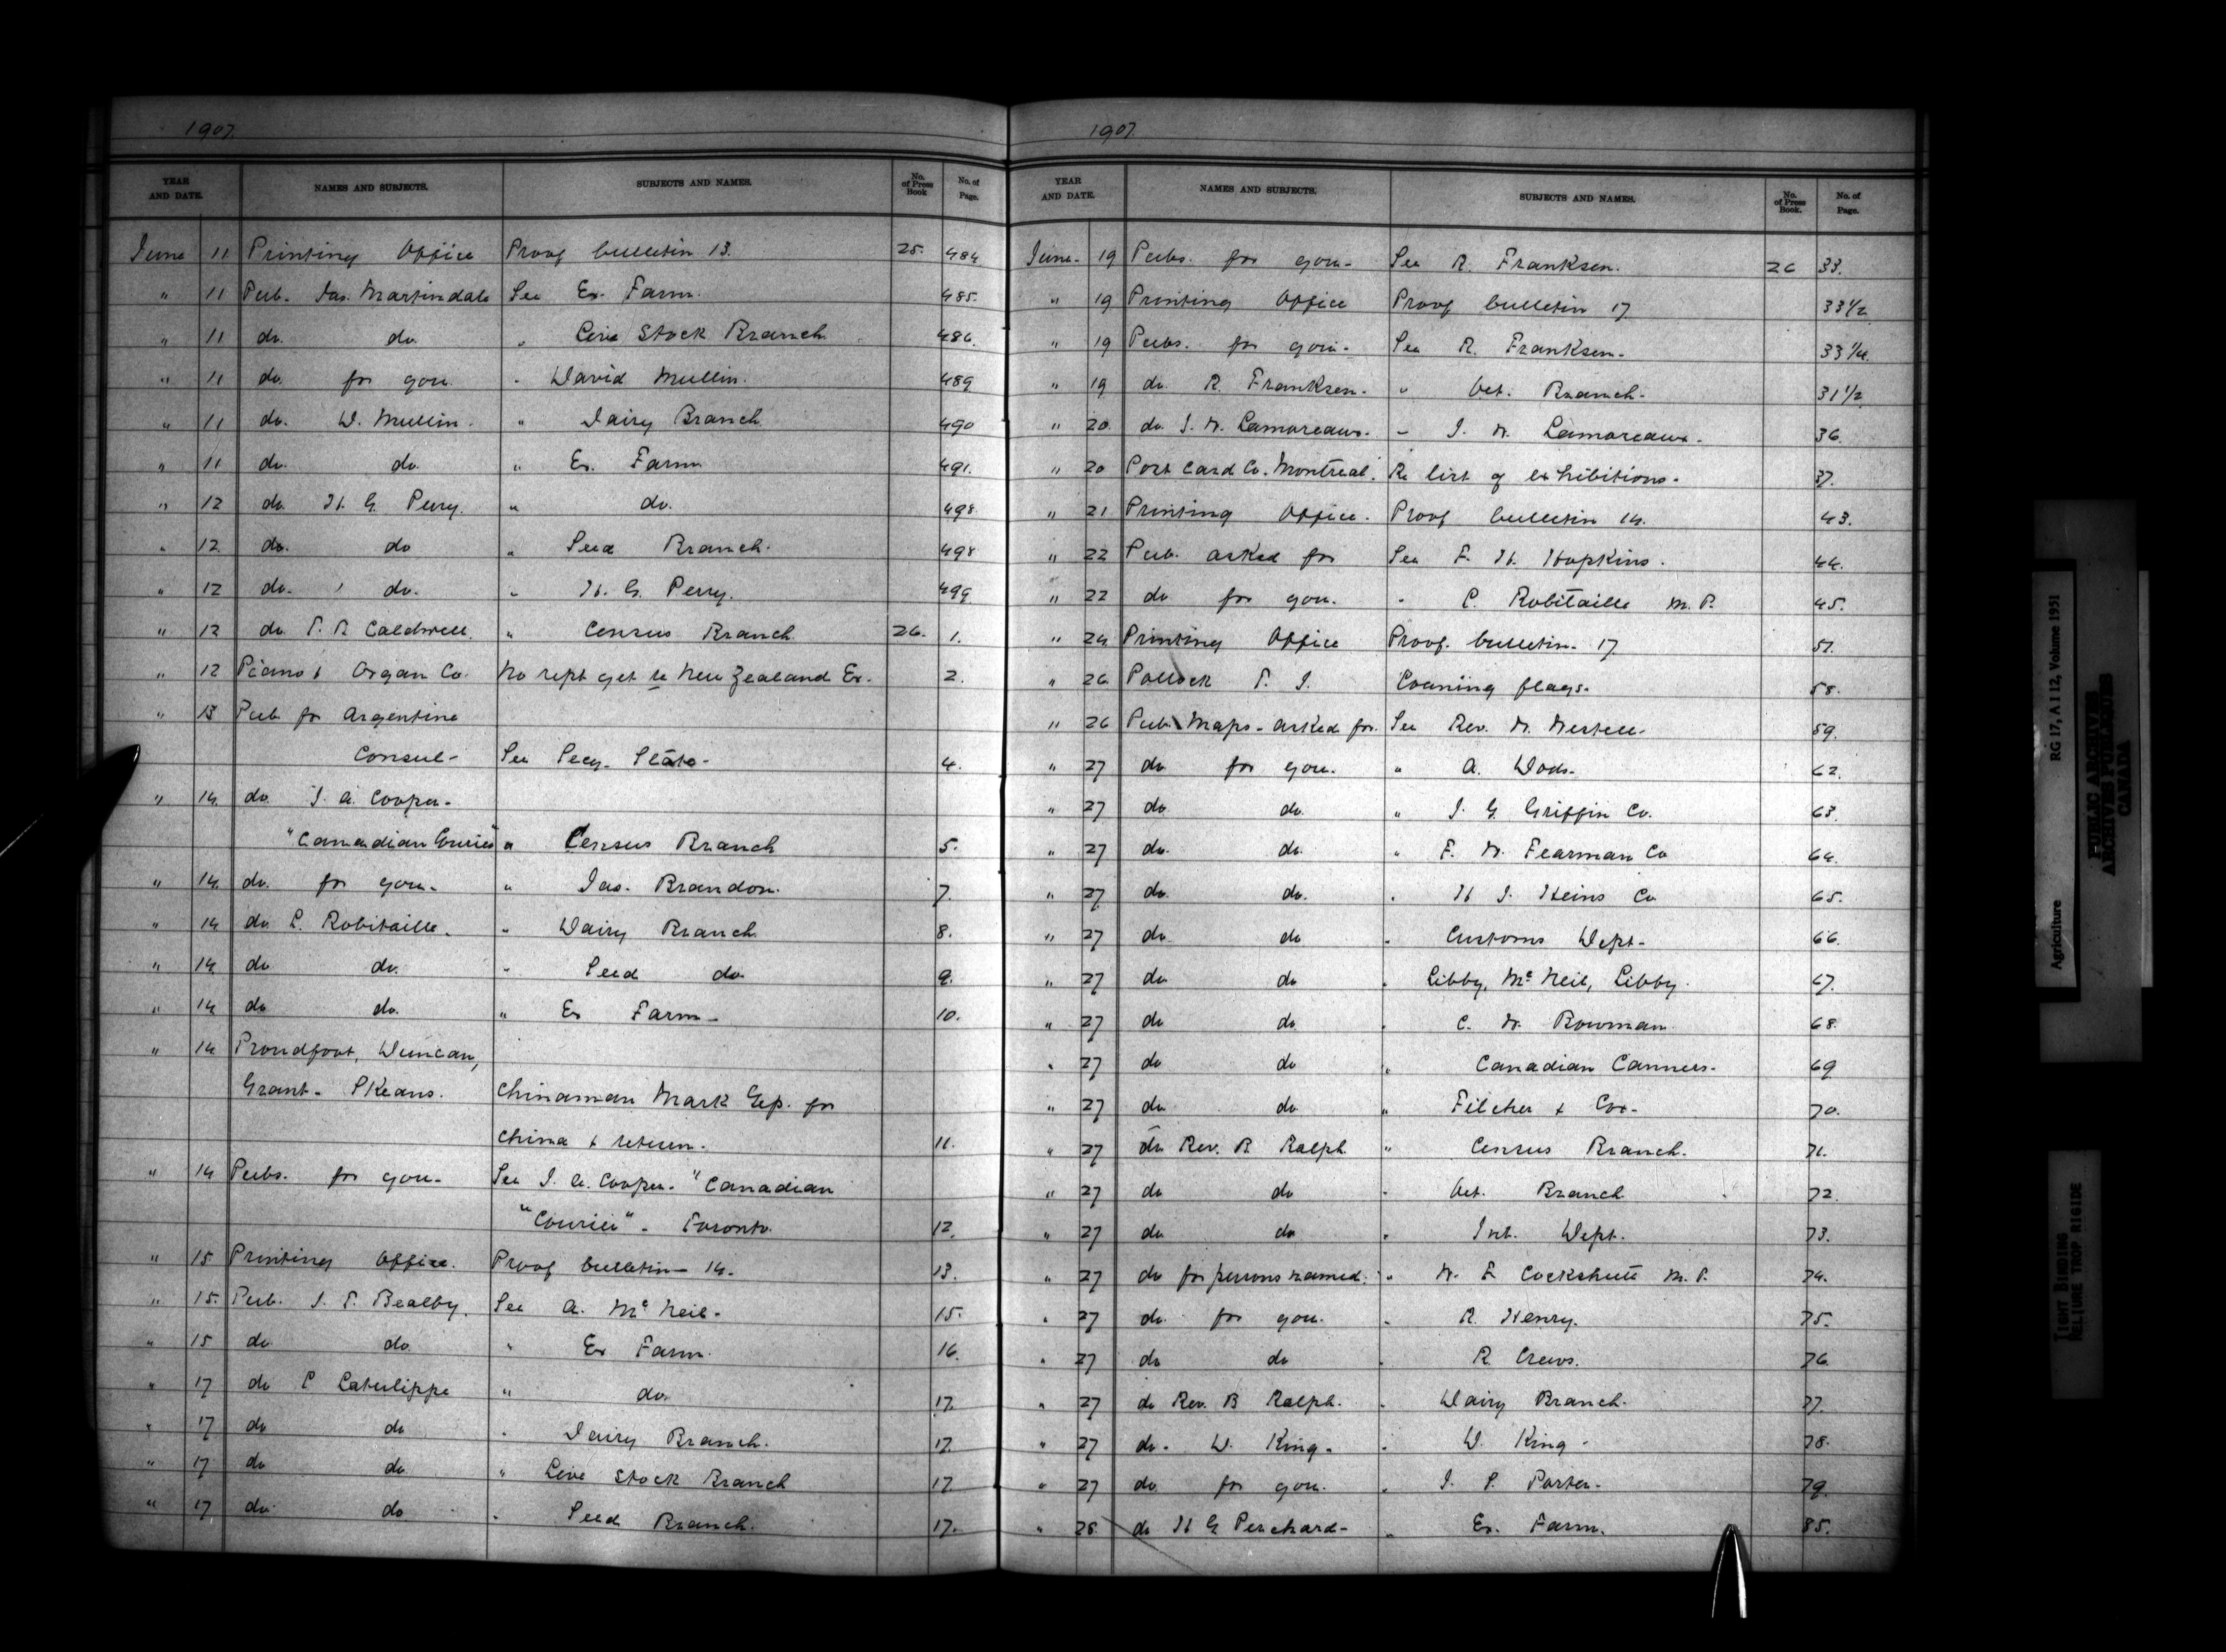 1907.
YEAR AND DATE. NAMES AND SUBJECTS. SUBJECTS AND NAMES. No. of Press Book No. of Page.
June 11 Printing Office Proof bulletin 13. 25. 484
" 11 Pub. Jas. Martindale See Ex. Farm. 485.
" 11 do. do. " Live Stock Branch. 486.
" 11 do. for you. " David Mullin. 489
" 11 do. D. Mullin. " Dairy Branch 490
" 11 do. do. " Ex. Farm 491.
" 12 do. H. G. Perry. " do. 498.
" 12. do. do " Seed Branch. 498
" 12 do. do. " H. G. Perry. 499.
" 12 do. T. B. Caldwell. " Census Branch 26. 1.
" 12 Piano & Organ Co. No rept yet re New Zealand Ex. 2.
" 13 Pub. for Argentine
Consul- See Secy. State- 4.
" 14. do. J. A. Cooper-
"Canadian Courier" " Census Branch 5.
" 14. do. for you- " Jas. Brandon. 7.
" 14 do L. Robitaille. " Dairy Branch 8.
" 14. do do. " Seed do. 9.
" 14 do do. " Ex Farm- 10.
" 14 Proudfoot, Duncan,
Grant- Skeans. Chinaman Mark Gep. for
China & return. 11.
" 14 Pubs. for you- See J. A. Cooper. "Canadian
"Courier" - Toronto. 12.
" 15 Printing Office. Proof bulletin- 14. 13.
" 15. Pub. J. T. Bealby. See A. McNeil- 15.
" 15 do. do. " Ex Farm. 16.
" 17 do C Latulippe " do. 17.
" 17 do do " Dairy Branch. 17.
" 17 do do " Live Stock Branch 17.
" 17 do. do " Seed Branch. 17.
1907.
YEAR AND DATE. NAMES AND SUBJECTS. SUBJECTS AND NAMES. No. of Press Book. No. of Page.
June- 19 Pubs. for you- See R. Franksen. 26 33.
" 19 Printing Office Proof bulletin 17 33 1/2
" 19 Pubs. for you- See R. Franksen- 33 1/4.
" 19 do. R. Franksen- " Vet. Branch- 31 1/2
" 20. do J. W. Lamoreaux- " J. W. Lamoreaux- 36.
" 20 Post Card Co. Montreal. Re list of exhibitions- 37.
" 21 Printing Office. Proof bulletin 14. 43.
" 22 Pub. asked for See F. H. Hopkins. 44.
" 22 do for you. " C. Robitaille M.P. 45.
" 24 Printing Office Proof. bulletin- 17. 51.
" 26. Pollock T. J. Loaning flags- 58.
" 26 Pub. Maps - asked for. See Rev. W. Westell- 59.
" 27 do for you. " A. Dods- 62.
" 27 do. do. " J. G. Griffin Co. 63.
" 27 do. do. " F. W. Fearman Co 64.
" 27 do. do. " H J. Heins Co 65.
" 27 do. do " Customs Dept- 66.
" 27 do do " Libby, McNeil, Libby. 67.
" 27 do do. " C. W. Bowman 68.
" 27 do do " Canadian Canners- 69
" 27 do do " Pilcher & Cox- 70.
" 27 do Rev. B Ralph " Census Branch. 71.
" 27 do do " Vet. Branch 72.
" 27 do do " Int. Dept. 73.
" 27 do for persons named. " W. F. Cockshutt M.P. 74.
" 27 do. for you. " R. Henry. 75.
" 27 do do " R. Crews. 76.
" 27 do Rev. B Ralph. " Dairy Branch- 77.
" 27 do. D. King- " D. King- 78.
" 27 do. for you. " J. P. Porter- 79.
" 28. do H G Perchard- " Ex. Farm. 85.
Agriculture RG 17, A I 12, Volume 1951
PUBLIC ARCHIVES
ARCHIVES PUBLIQUES
CANADA
TIGHT BINDING
RELIURE TROP RIGIDE